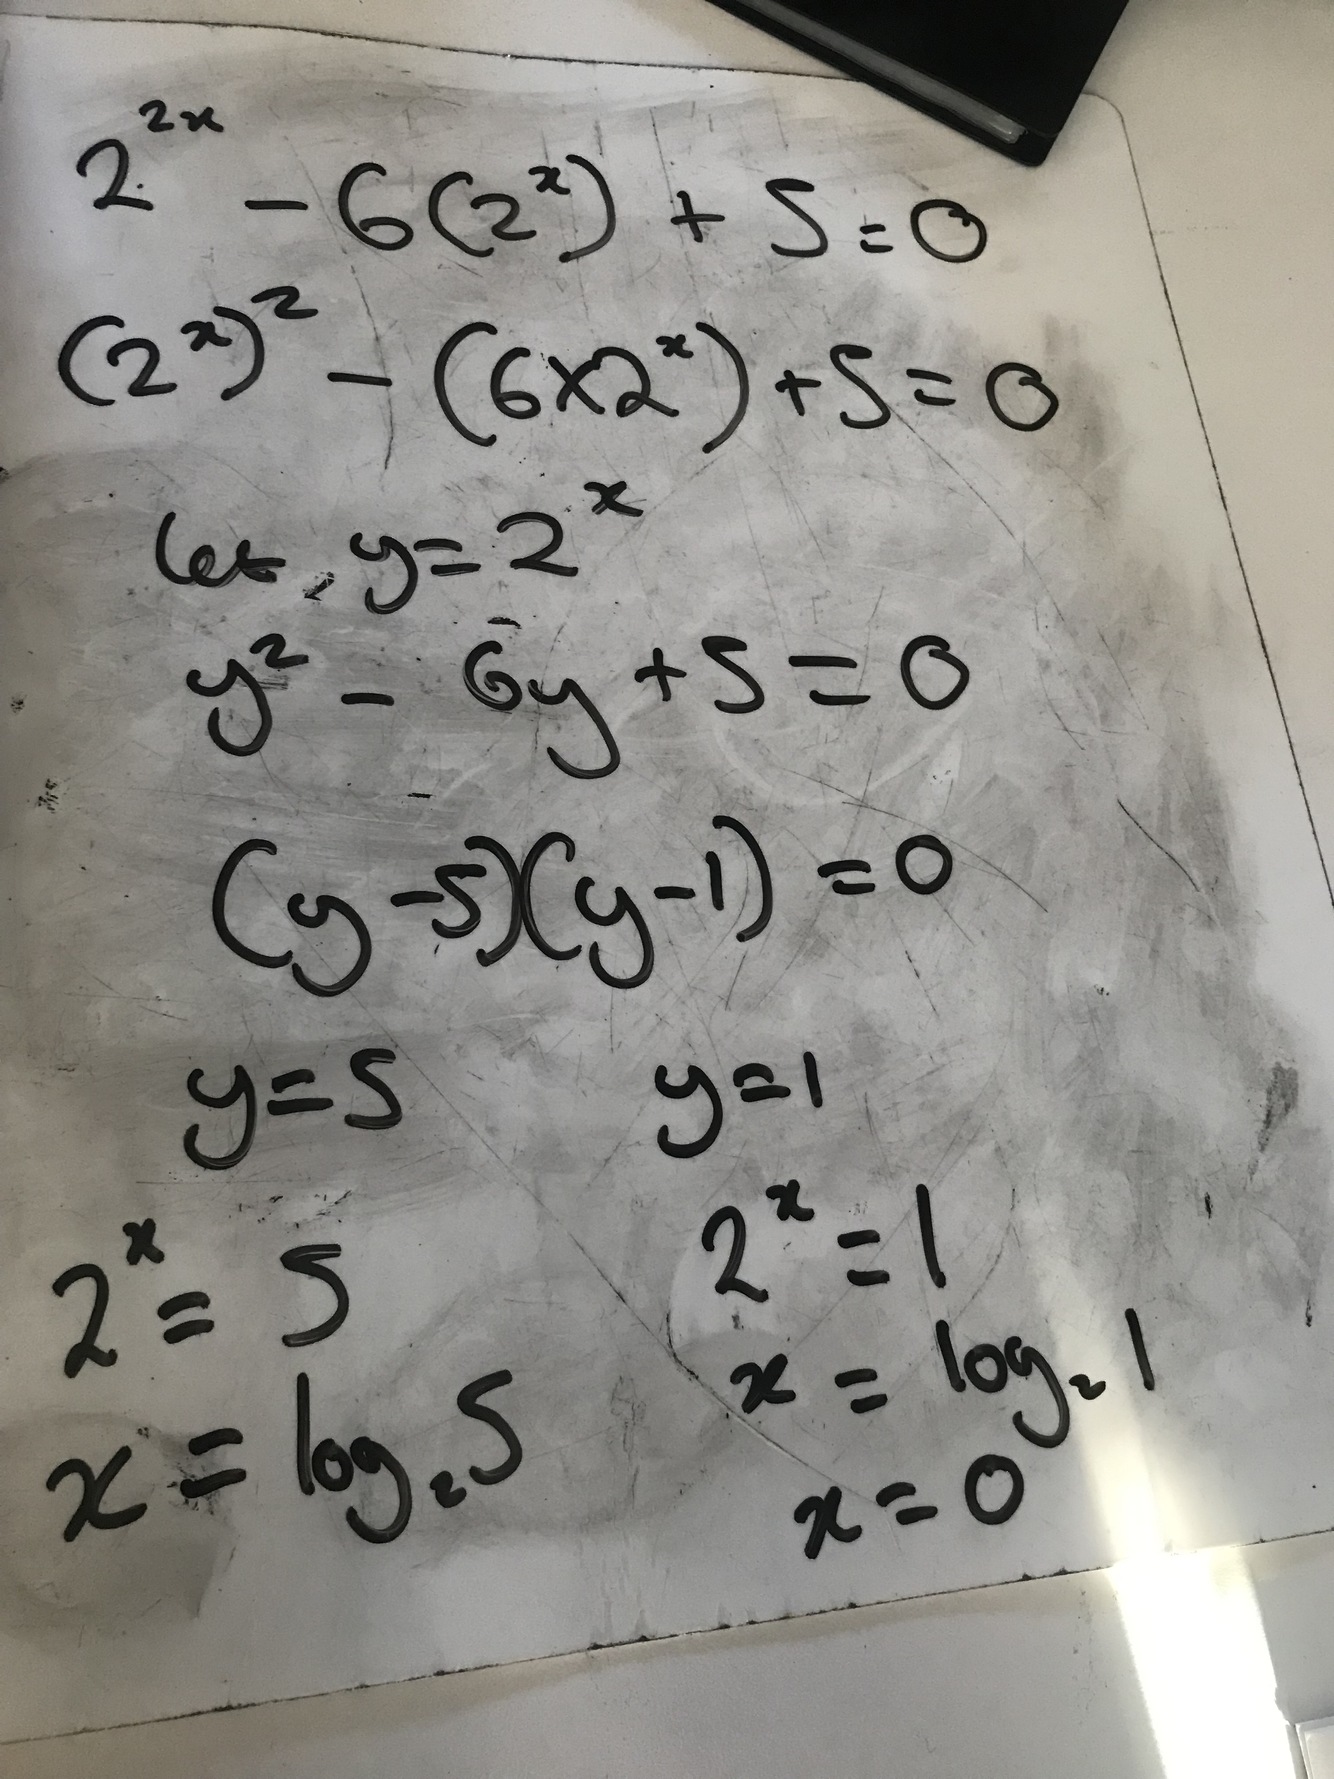 2²ˣ - 6(2ˣ) + 5 = 0
(2ˣ)² - (6×2ˣ) + 5 = 0
let y = 2ˣ
y² - 6y + 5 = 0
(y-5)(y-1) = 0
y = 5 y = 1
2ˣ = 5 2ˣ = 1
x = log₂5 x = log₂1
x = 0